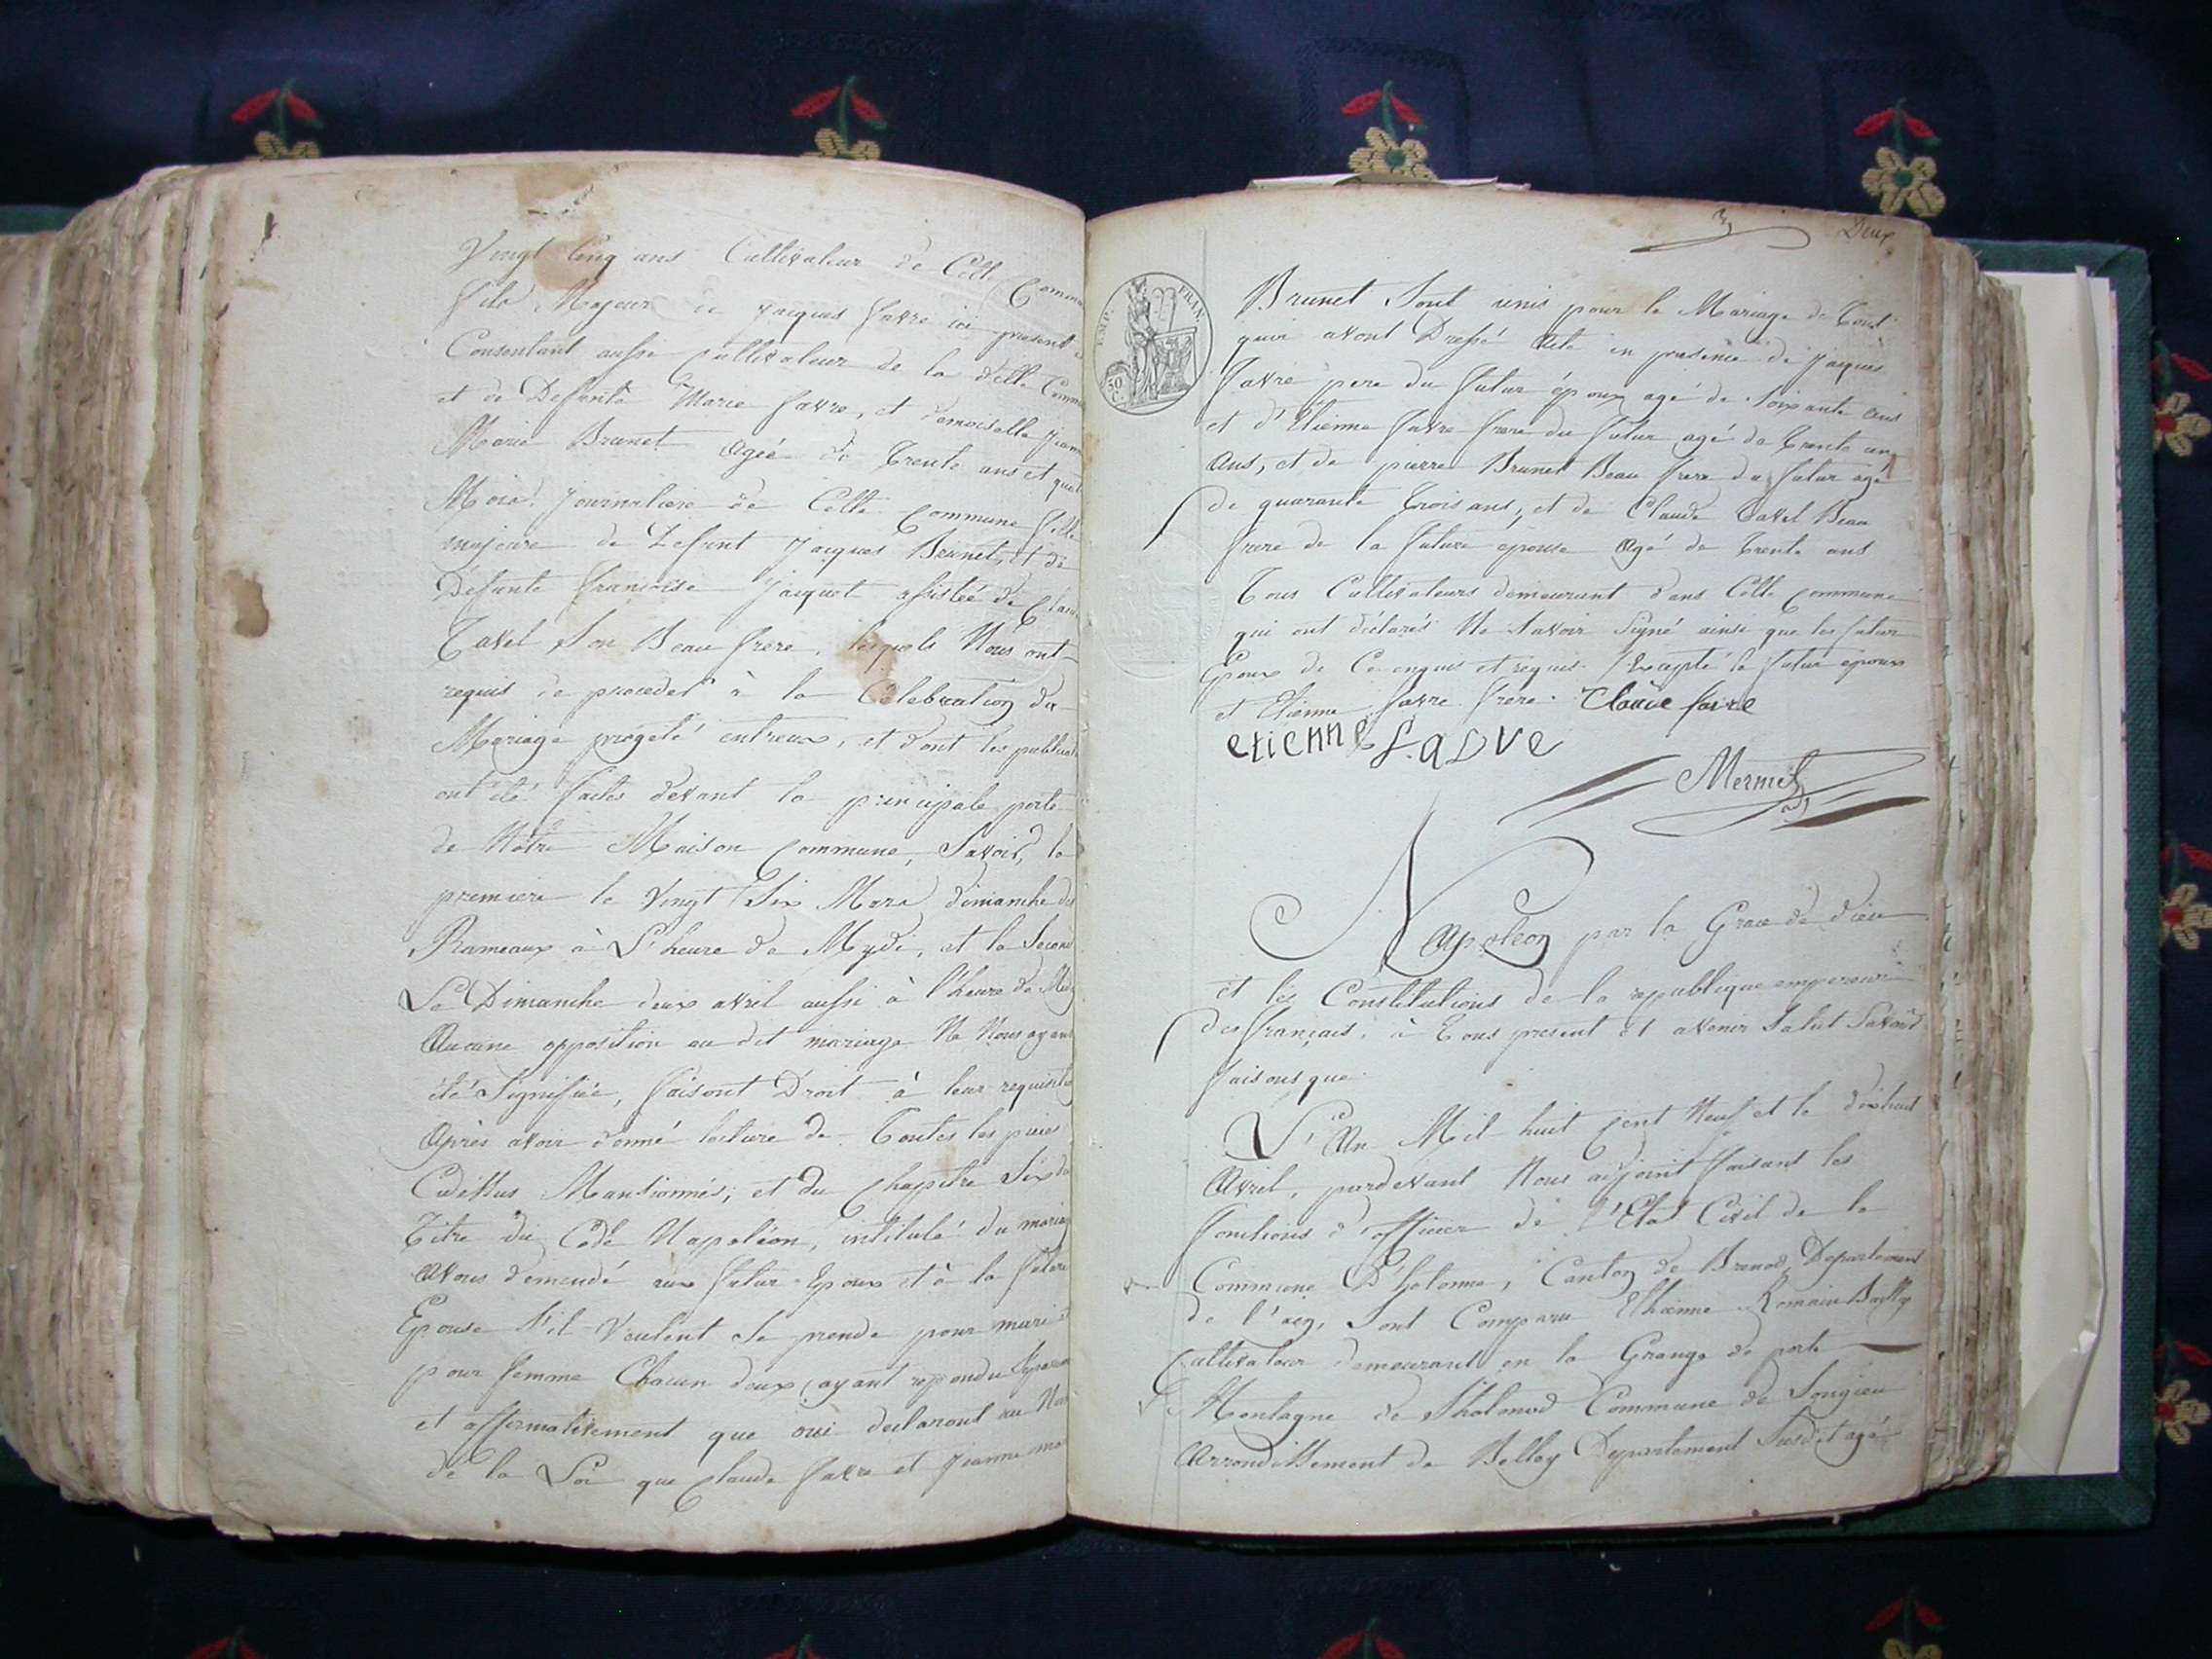 Vingt Cinq ans Cultivateur de Cette Commu
fils Majeur de jacques favre ici present
Consentant aussi Cultivateur de la ditte Comm
et de Defunte Marie favre, et demoiselle jean
Marie Brunet Agée de Trente ans et quat
Mois journaliere de Cette Commune fille
majeure de Defunt jacques Brunet, et de
Defunte françoise jacquet assistée de Clau
Tavel Son Beau frere, lesquels Nous ont
requis de proceder à la Celebration du
Mariage progeté entreux, et dont les publicat
ont été faites devant la principale porte
de Nôtre Maison Commune, Savoir, la
premiere le Vingt Six Mars dimanche des
Rameaux à L'heure de Mydi, et la Second
Le Dimanche deux avril aussi à l'heure de Mid
Aucune opposition au dit mariage Ne Nous ayant
été Signifiée, faisont Droit à leur requisit
Après avoir donné lecture de Toutes les pieces
Cidessus Mantionnés, et du Chapitre Six du
Titre du Code Napoléon, intitulé du mariag
Avons demendé aux futur Epoux et à la future
Epouse S'il Veulent Se prende pour mari et
pour femme Chacun deux ayant repondu Separem
et affirmativement que oui declaront au Nom
de la Loi que Claude favre et jeanne mar
3 Deux
EMP. FRAN.
50 C.
Brunet Sont unis pour le Mariage de Tout
quoi avont Dressé Acte en presence de jacques
favre pere du futur époux agé de Soixante ans
et d'Etienne favre frere du futur agé de Trente un
Ans, et de pierre Brunet Beau frere du futur agé
de quarante Trois ans, et de Claude Tavel Beau
frere de la future épouse Agé de Trente ans
Tous Cultivateurs demeurant dans Cette Commune
qui ont déclarés Ne Savoir Signé ainsi que les futur
Epoux de Ce enquis et requis Excepté le futur époux
et Etienne favre frere. Claude favre
etienne favre
Mermet
Napoléon par la Grace de dieu
et les Constitutions de la republique empereur
des français, à Tous present et avenir Salut Savoir
faisons que
L'An Mil huit Cent Neuf et le dixhuit
Avril, pardevant Nous adjoint faisant les
fonctions d'officier de l'Etat Civil de la
Commune D'hotonne, Canton de Brenod, Departement
de l'ain, Sont Comparu Ethienne Romain Bailly
Cultivateur demeurant en la Grange de porte
Montagne de Sholomod Commune de Songieu
Arrondissement de Belley Departement Susdit agé